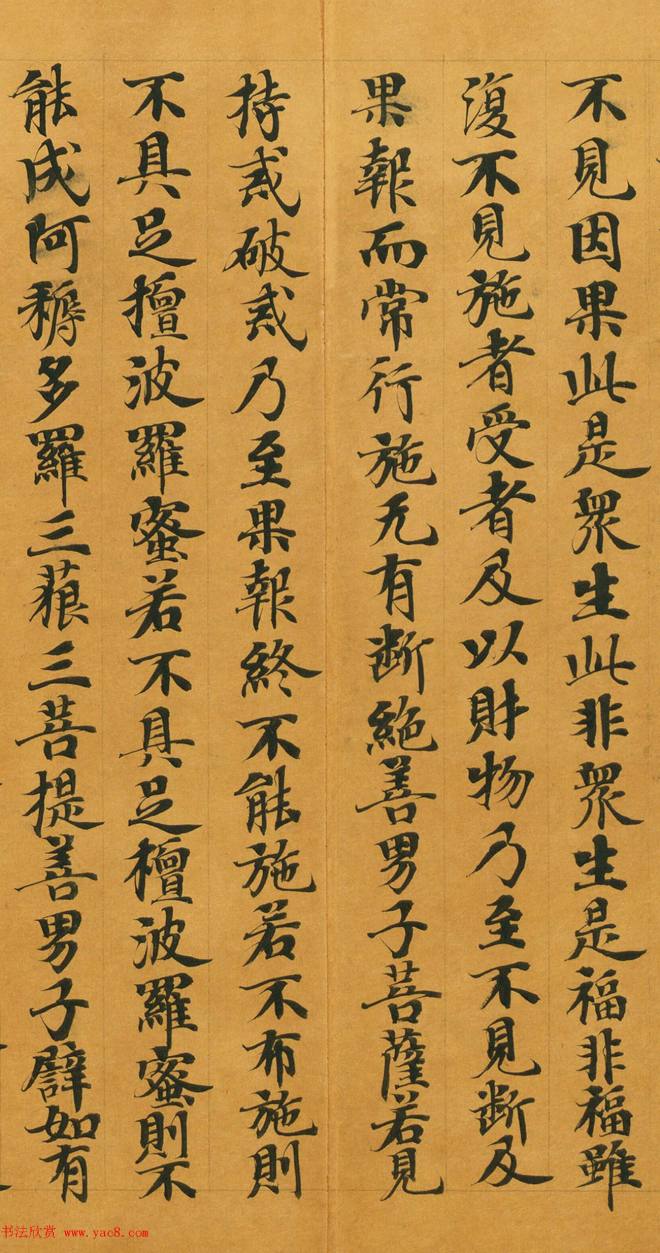 不見因果此是眾生此非眾生是福非福雖
復不見施者受者及以財物乃至不見斷及
果報而常行施无有斷絕善男子菩薩若見
持戒破戒乃至果報終不能施若不布施則
不具足檀波羅蜜若不具足檀波羅蜜則不
能成阿耨多羅三藐三菩提善男子譬如有
书法欣赏 www.yac8.com